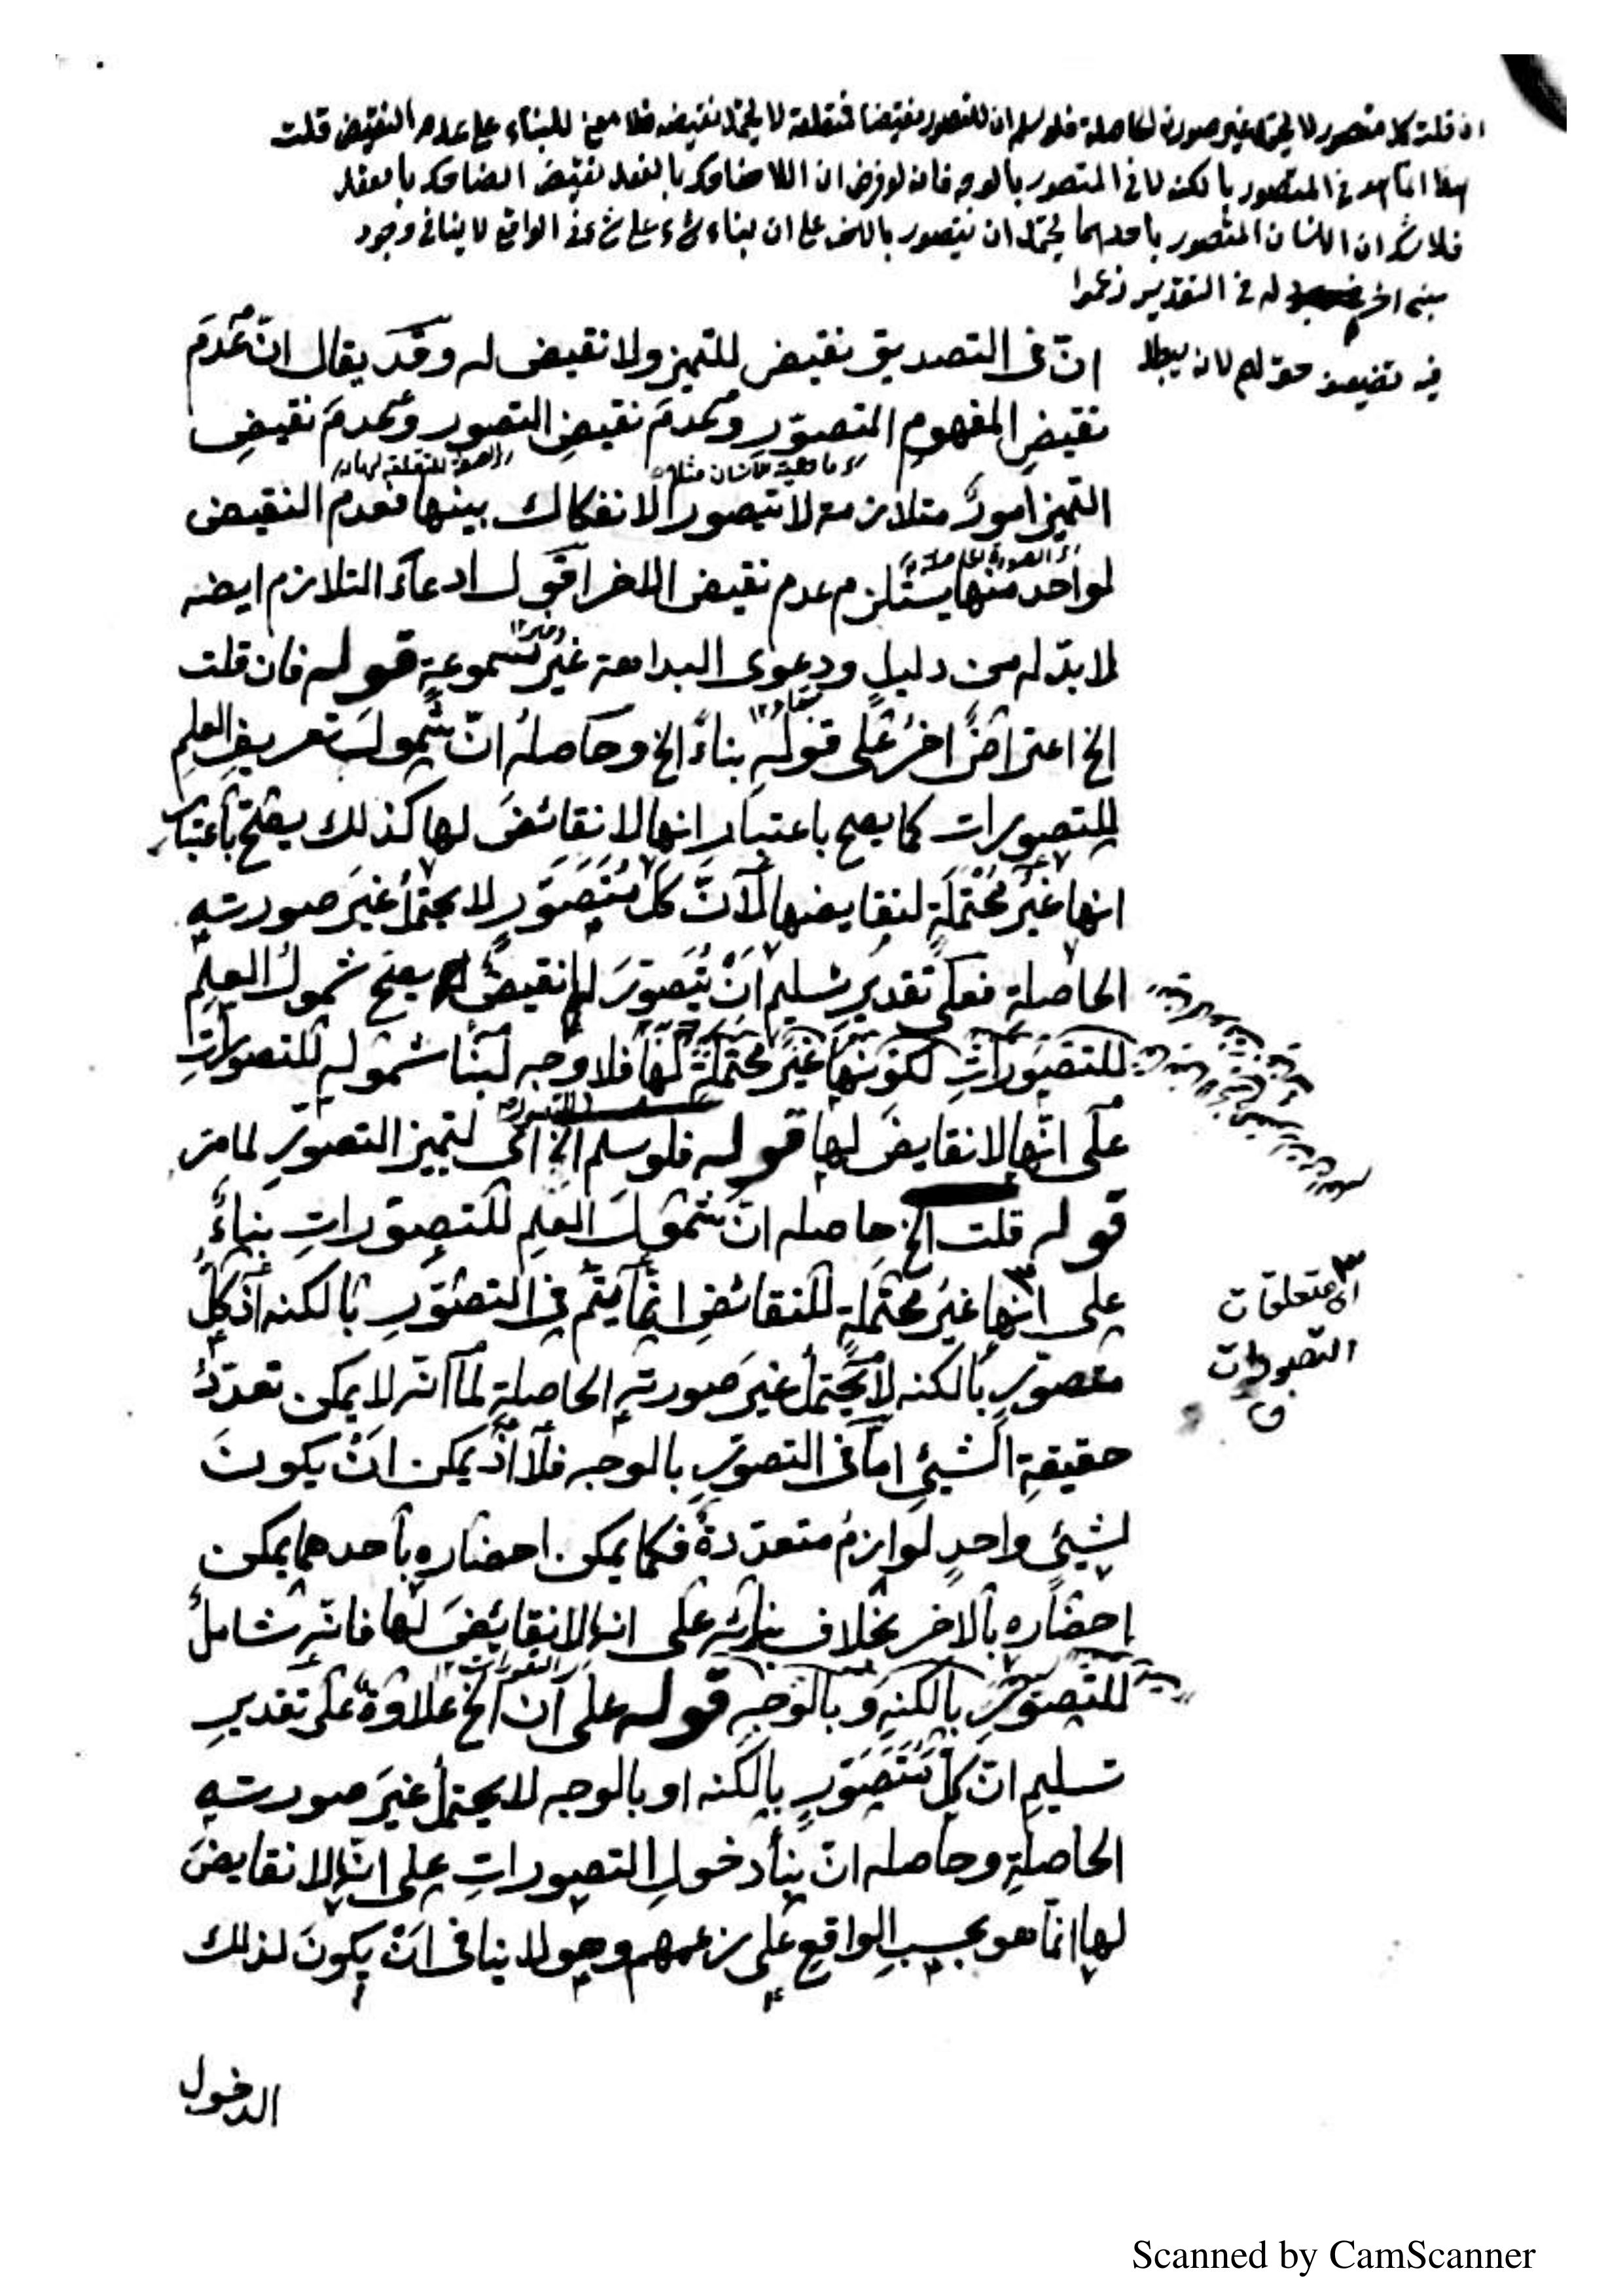 ان قلت كل متصور لا يحتمل غير صورته الحاصلة فلو سلم ان للتصور نقيضا فمتعلقه لا يحتمل نقيضه فلا معنى للبناء على عدم النقيض قلت
هذا انما هو في المتصور بالكنه لا في المتصور بالوجه فانه لو فرض ان اللاضاحك بالفعل نقيض الضاحك بالفعل
فلا شك ان الانسان المتصور باحدهما يحتمل ان يتصور بالاخر على ان بناء شيء على شيء في الواقع لا ينافي وجود
مبنى اخر له في التقدير زعموا
فيه تضعيف حق لهم لانه يبطل
انّ فى التصديق نقيض للتميز ولا نقيض له وقد يقال انّ عدمَ
نقيضِ المفهوم المتصوّرِ وعدمَ نقيضِ التصور وعدمَ نقيضِ
كما هية الانسان مثلا
التميز امورٌ متلازمة لا يتصور الانفكاك بينها فعدم النقيض
اى الصورة الحاصلة
لواحد منها يستلزم عدم نقيض الاخر اقول ادعاء التلازم ايضه
لا بدّ له من دليلٍ ودعوى البداهة غيرُ مسموعةٍ قوله فان قلت
الخ اعتراضٌ اخرُ على قولهِ بناءً الخ وحاصلهُ انّ شمولَ تعريفِ العلمِ
للتصورات كما يصح باعتبار انها لا نقائضَ لها كذلك يصحّ باعتبار
انها غيرُ محتملةٍ لنقايضها لانّ كلّ مُتَصَوَّرٍ لا يحتملُ غيرَ صورتهِ
الحاصلةِ فعلى تقديرِ تسليمِ اَنْ يُتَصَوَّرَ لها نقيضٌ يصحّ شمولُ العلمِ
للتصوراتِ لكونها غيرَ محتملةٍ لها فلا وجه لبنا شموله للتصوراتِ
على انّها لا نقايضَ لها قوله فلو سلم الخ اى لتميز التصوّرِ لما مرّ
قوله قلت الخ حاصله انّ شمولَ العلمِ للتصوّراتِ بناءً
على انها غيرُ محتملةٍ للنقائضِ انّما يتمّ فى التصوّرِ بالكنه اذ كلّ
اى متعلقات
التصورات
متصوّرٍ بالكنه لا يحتملُ غيرَ صورتهِ الحاصلةِ لما انّه لا يمكن تعدّدُ
حقيقةِ الشيئِ امّا فى التصوّرِ بالوجه فلا اذ يمكن انْ يكونَ
لشيئٍ واحدٍ لوازمُ متعدّدةٌ فكما يمكن احضاره باحدهما يمكن
احضاره بالاخر بخلاف بنائه على انها لا نقائضَ لها فانّه شاملٌ
للتصوّرِ بالكنهِ وبالوجهِ قوله على ان الخ علاوةٌ على تقديرِ
تسليمِ انّ كلّ مُتَصَوَّرٍ بالكنه او بالوجه لا يحتملُ غيرَ صورتهِ
الحاصلةِ وحاصله انّ بِناءَ دخولِ التصوراتِ على انّها لا نقايضَ
لها انّما هو بحسبِ الواقعِ على زعمهم وهو لا ينافى انْ يكونَ لذلك
الدخول
Scanned by CamScanner